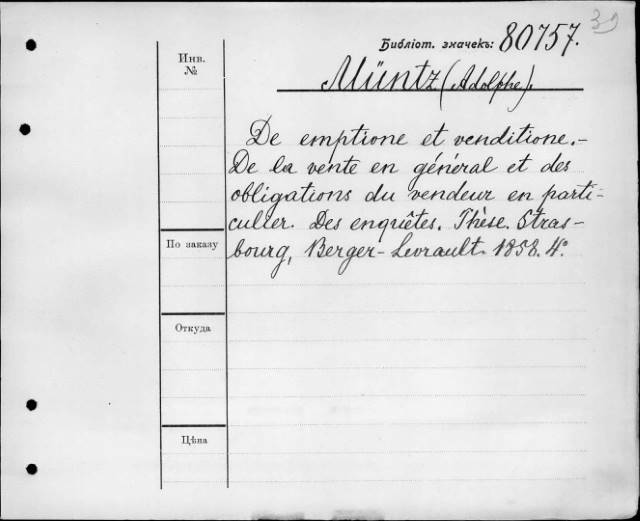 39
Библіот. значекъ: 80757.
Müntz (Adolphe).
Инв.
№
De emptione et venditione.-
De la vente en général et des
obligations du vendeur en parti-
culier. Des enquêtes. Thèse. Stras-
bourg, Berger-Levrault. 1858. 4°.
По заказу
Откуда
Цѣна